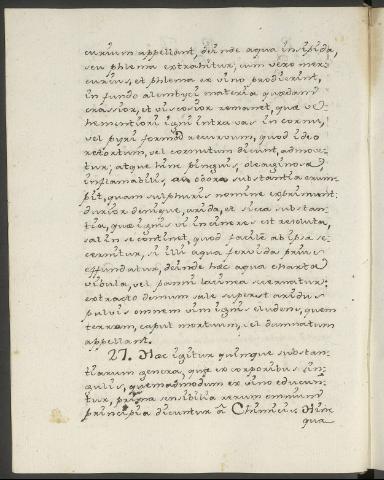 curium appellant, deinde aqua insipida,
seu phlema extrahitur; cum vero mer-
curius, et phlema ex vino prodierint,
in fundo alembyci materia quædam
crassior, et viscosior remanet, quæ ve-
hementiori igni intra vas in cornu,
vel pyri formam recurvum, quod ideo
retortum, vel cornutum dicunt, admove-
tur; atque hinc pinguis, oleaginosa
inflamabilis, odora substantia erum-
pit, quam sulphuris nomine exprimunt:
durior denique, arida, et sicca substan-
tia, quæ ignis vi in cineres est resoluta,
sal in se continet, quod facile ab ipsa se-
cernitur, si illi aqua fervida prius
effundatur, deinde hæc aqua charta
bibula, vel panni lacinea secernatur:
extracto demum sale superest aridus
pulvis omnem vim ignis eludens, quem
terram, caput mortuum, vel damnatum
appellant.
27. Hæc igitur quinque substan-
tiarum genera, quæ ex corporibus sin-
gulis, quemadmodum ex vino educun-
tur, prima sensibilia rerum omnium
principia dicuntur à Chimicis. Hinc
qua